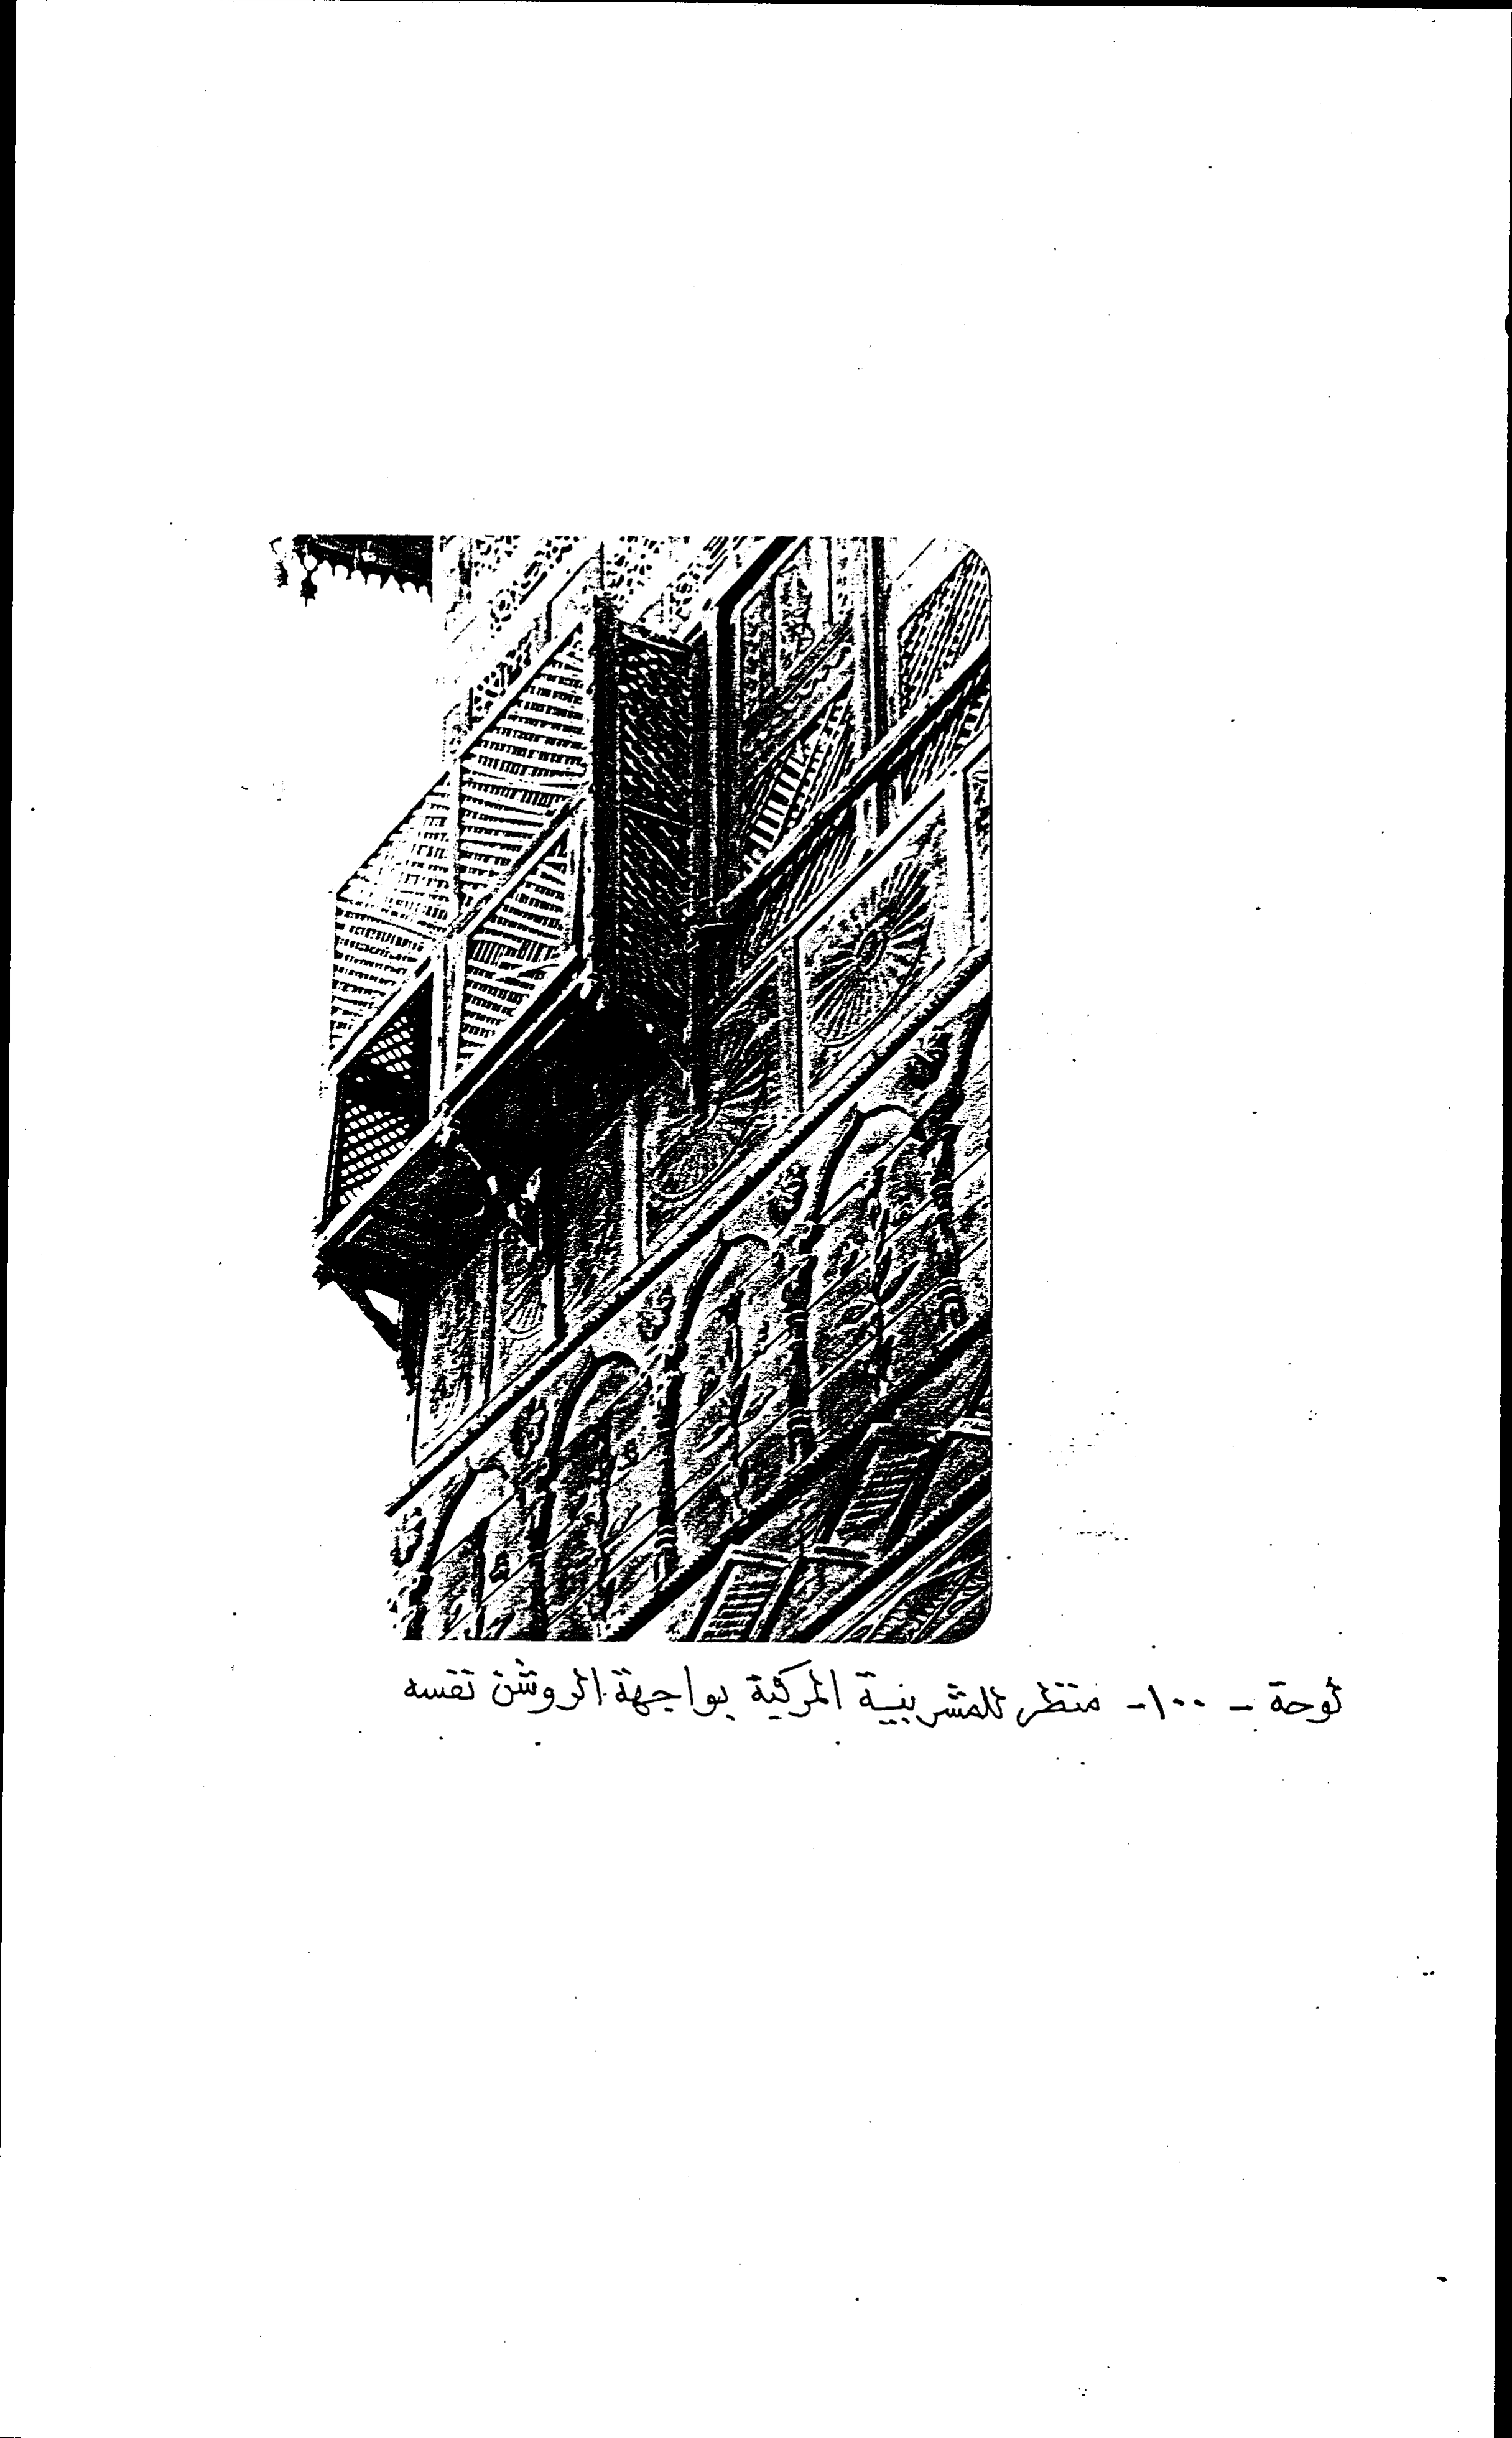 لوحة - ١٠٠- منظر للمشربية المركبة بواجهة الروشن نفسه